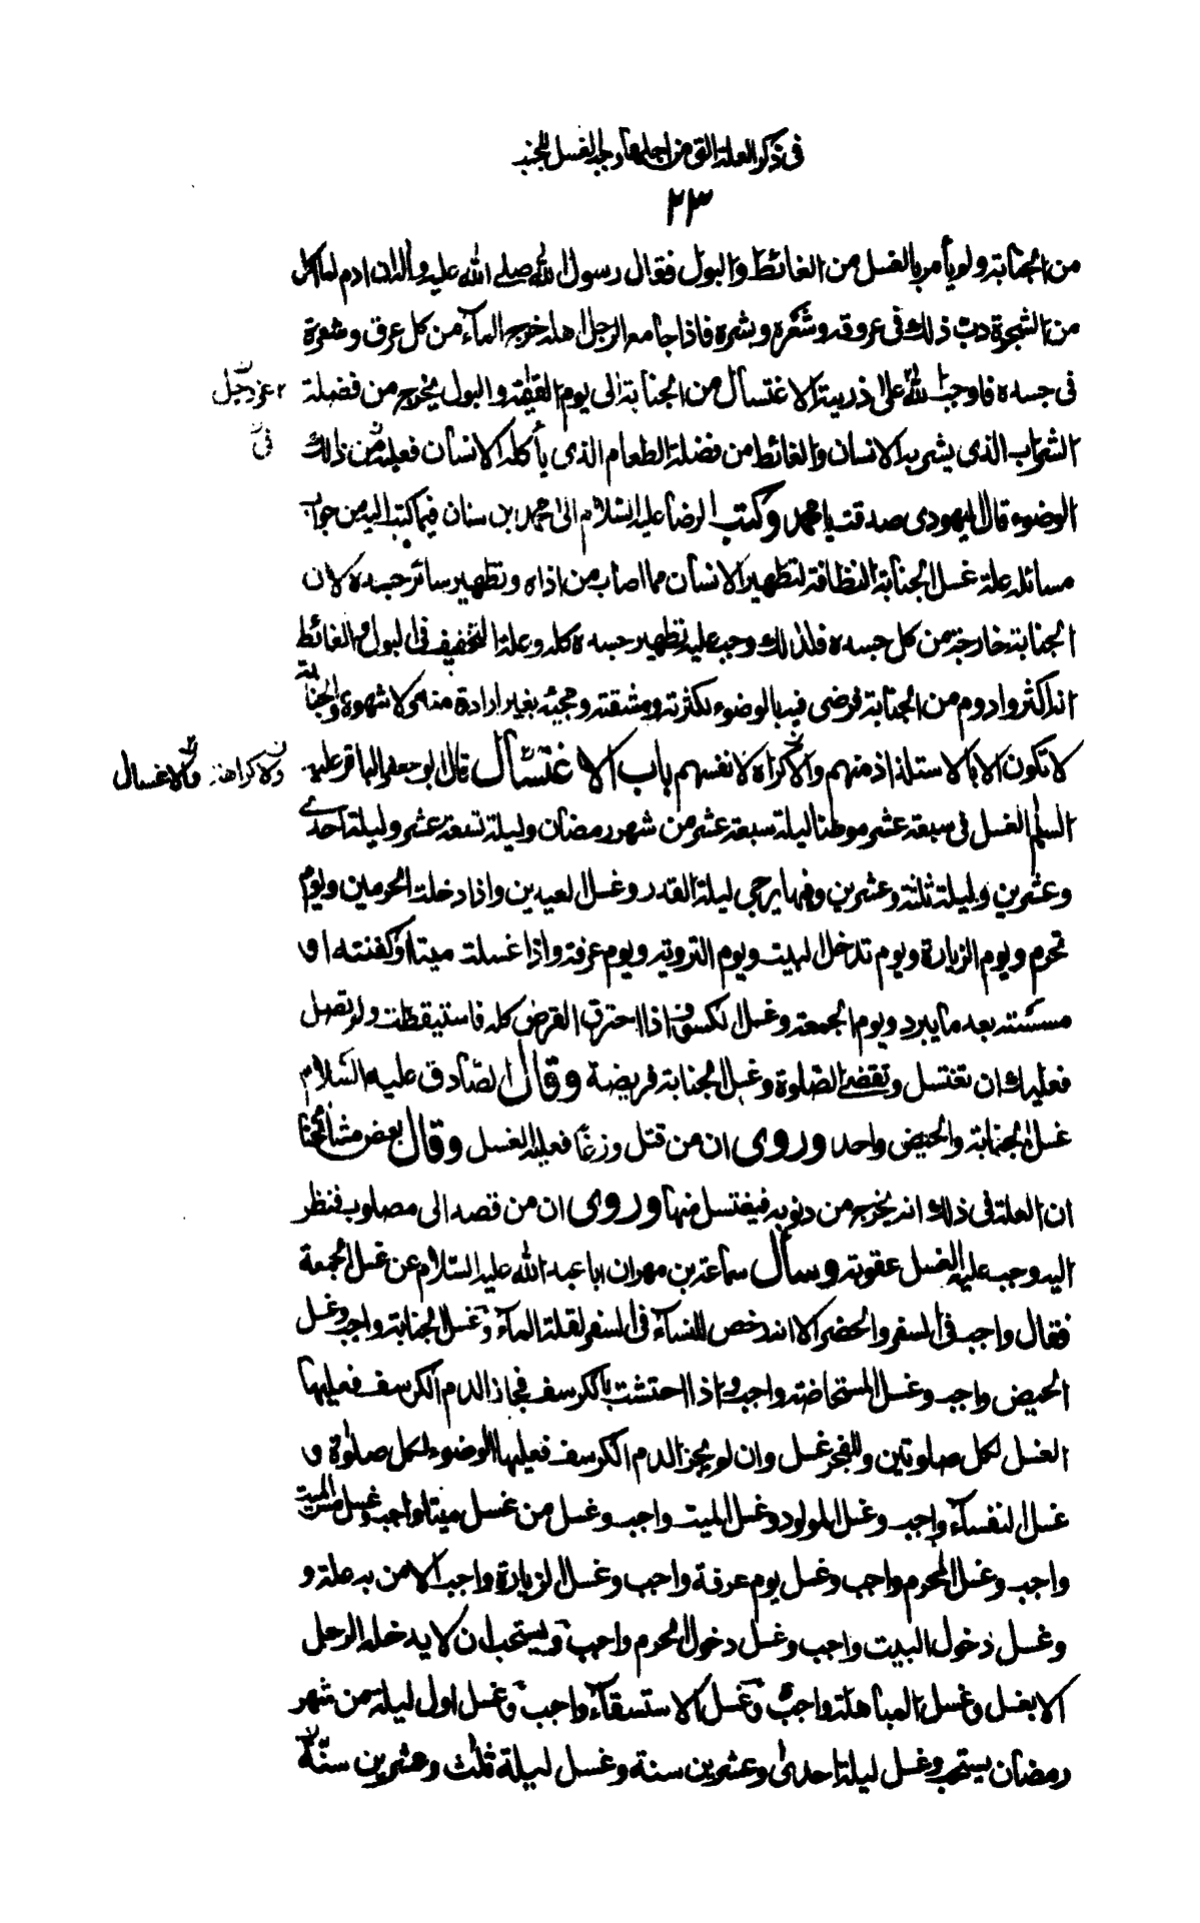 في ذكر العلة التي من اجلها وجب الغسل للجنب
٢٣
من الجنابة ولم يأمر بالغسل من الغائط والبول فقال رسول الله صلى الله عليه وآله ان ادم لما اكل
من الشجرة دبّ ذلك في عروقه وشعره وبشره فاذا جامع الرجل اهله خرج الماء من كل عرق وشعرة
في جسده فاوجب الله على ذريته الاغتسال من الجنابة الى يوم القيمة والبول يخرج من فضلة
عز وجل
الشراب الذي يشربه الانسان والغائط من فضلة الطعام الذي يأكله الانسان فعليه من ذلك
في
الوضوء قال اليهودي صدقت يا محمد وكتب الرضا عليه السلام الى محمد بن سنان فيما كتب اليه من جواب
مسائله علة غسل الجنابة النظافة لتطهير الانسان مما اصاب من اذاه وتطهير سائر جسده لان
الجنابة خارجة من كل جسده فلذلك وجب عليه تطهير جسده كله وعلة التخفيف في البول والغائط
انه اكثر وادوم من الجنابة فرضى فيه بالوضوء لكثرته ومشقته ومجيئه بغير ارادة منه ولا شهوة والجنابة
لا تكون الا بالاستلذاذ منهم والاكراه لانفسهم باب الاغتسال قال ابو جعفر الباقر عليه
ولا كراهة والاغسال
السلم الغسل في سبعة عشر موطنا ليلة سبعة عشر من شهر رمضان وليلة تسعة عشر وليلة احدى
وعشرين وليلة ثلثة وعشرين وفيها يرجى ليلة القدر وغسل العيدين واذا دخلت الحرمين ويوم
تحرم ويوم الزيارة ويوم تدخل البيت ويوم التروية ويوم عرفة واذا غسلت ميتا او كفنته او
مسسته بعد ما يبرد ويوم الجمعة وغسل الكسوف اذا احترق القرص كله فاستيقظت ولم تصل
فعليك ان تغتسل وتقضى الصلوة وغسل الجنابة فريضة وقال الصادق عليه السلام
غسل الجنابة والحيض واحد وروى ان من قتل وزغا فعليه الغسل وقال بعض مشائخنا
ان العلة في ذلك انه يخرج من ذنوبه فيغتسل منها وروى ان من قصد الى مصلوب فنظر
اليه وجب عليه الغسل عقوبة وسأل سماعة بن مهران ابا عبد الله عليه السلام عن غسل الجمعة
فقال واجب في السفر والحضر الا انه رخص للنساء في السفر لقلة الماء وغسل الجنابة واجب وغسل
الحيض واجب وغسل المستحاضة واجب واذا احتشت بالكرسف فجاز الدم الكرسف فعليها
الغسل لكل صلوتين وللفجر غسل وان لم يجز الدم الكرسف فعليها الوضوء لكل صلوة و
غسل النفساء واجب وغسل المولود وغسل الميت واجب وغسل من غسل ميتا واجب وغسل من مس الميت
واجب وغسل المحرم واجب وغسل يوم عرفة واجب وغسل الزيارة واجب الا من به علة و
وغسل دخول البيت واجب وغسل دخول الحرم واجب ويستحب ان لا يدخله الرجل
الا بغسل وغسل المباهلة واجب وغسل الاستسقاء واجب وغسل اول ليلة من شهر
رمضان يستحب وغسل ليلة احدى وعشرين سنة وغسل ليلة ثلث وعشرين سنة